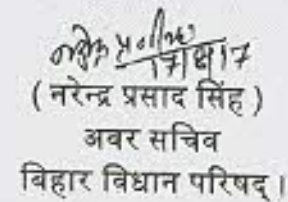 ( नरेन्द्र प्रसाद सिंह )
अवर सचिव
बिहार विधान परिषद्।